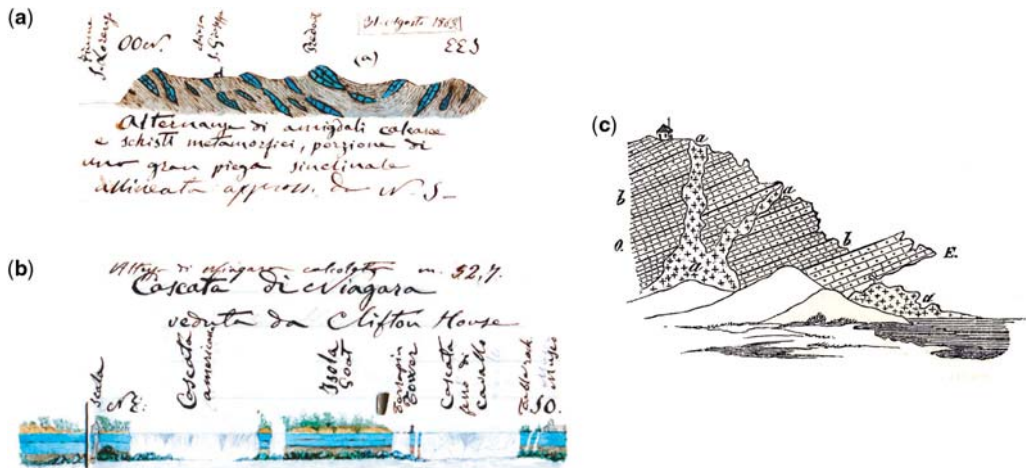 (a)
Duomo S. Lorenzo
OON.
chiesa S. Giuseppe
31. Agosto 1868
(a)
EES
Alternanza di amigdali calcaree
e schisti metamorfici, porzione di
una gran piega sinclinale
allineata appross. da N. S_
(b)
di Niagara calcolata m. 52,7.
Cascata di Niagara
veduta da Clifton House
Scala
NE.
Cascata americana
Isola Goat
Terrapin Tower
Cascata ferro di Cavallo
Table rock
Museo
SO.
(c)
a
b
a
O.
b
E.
a
a